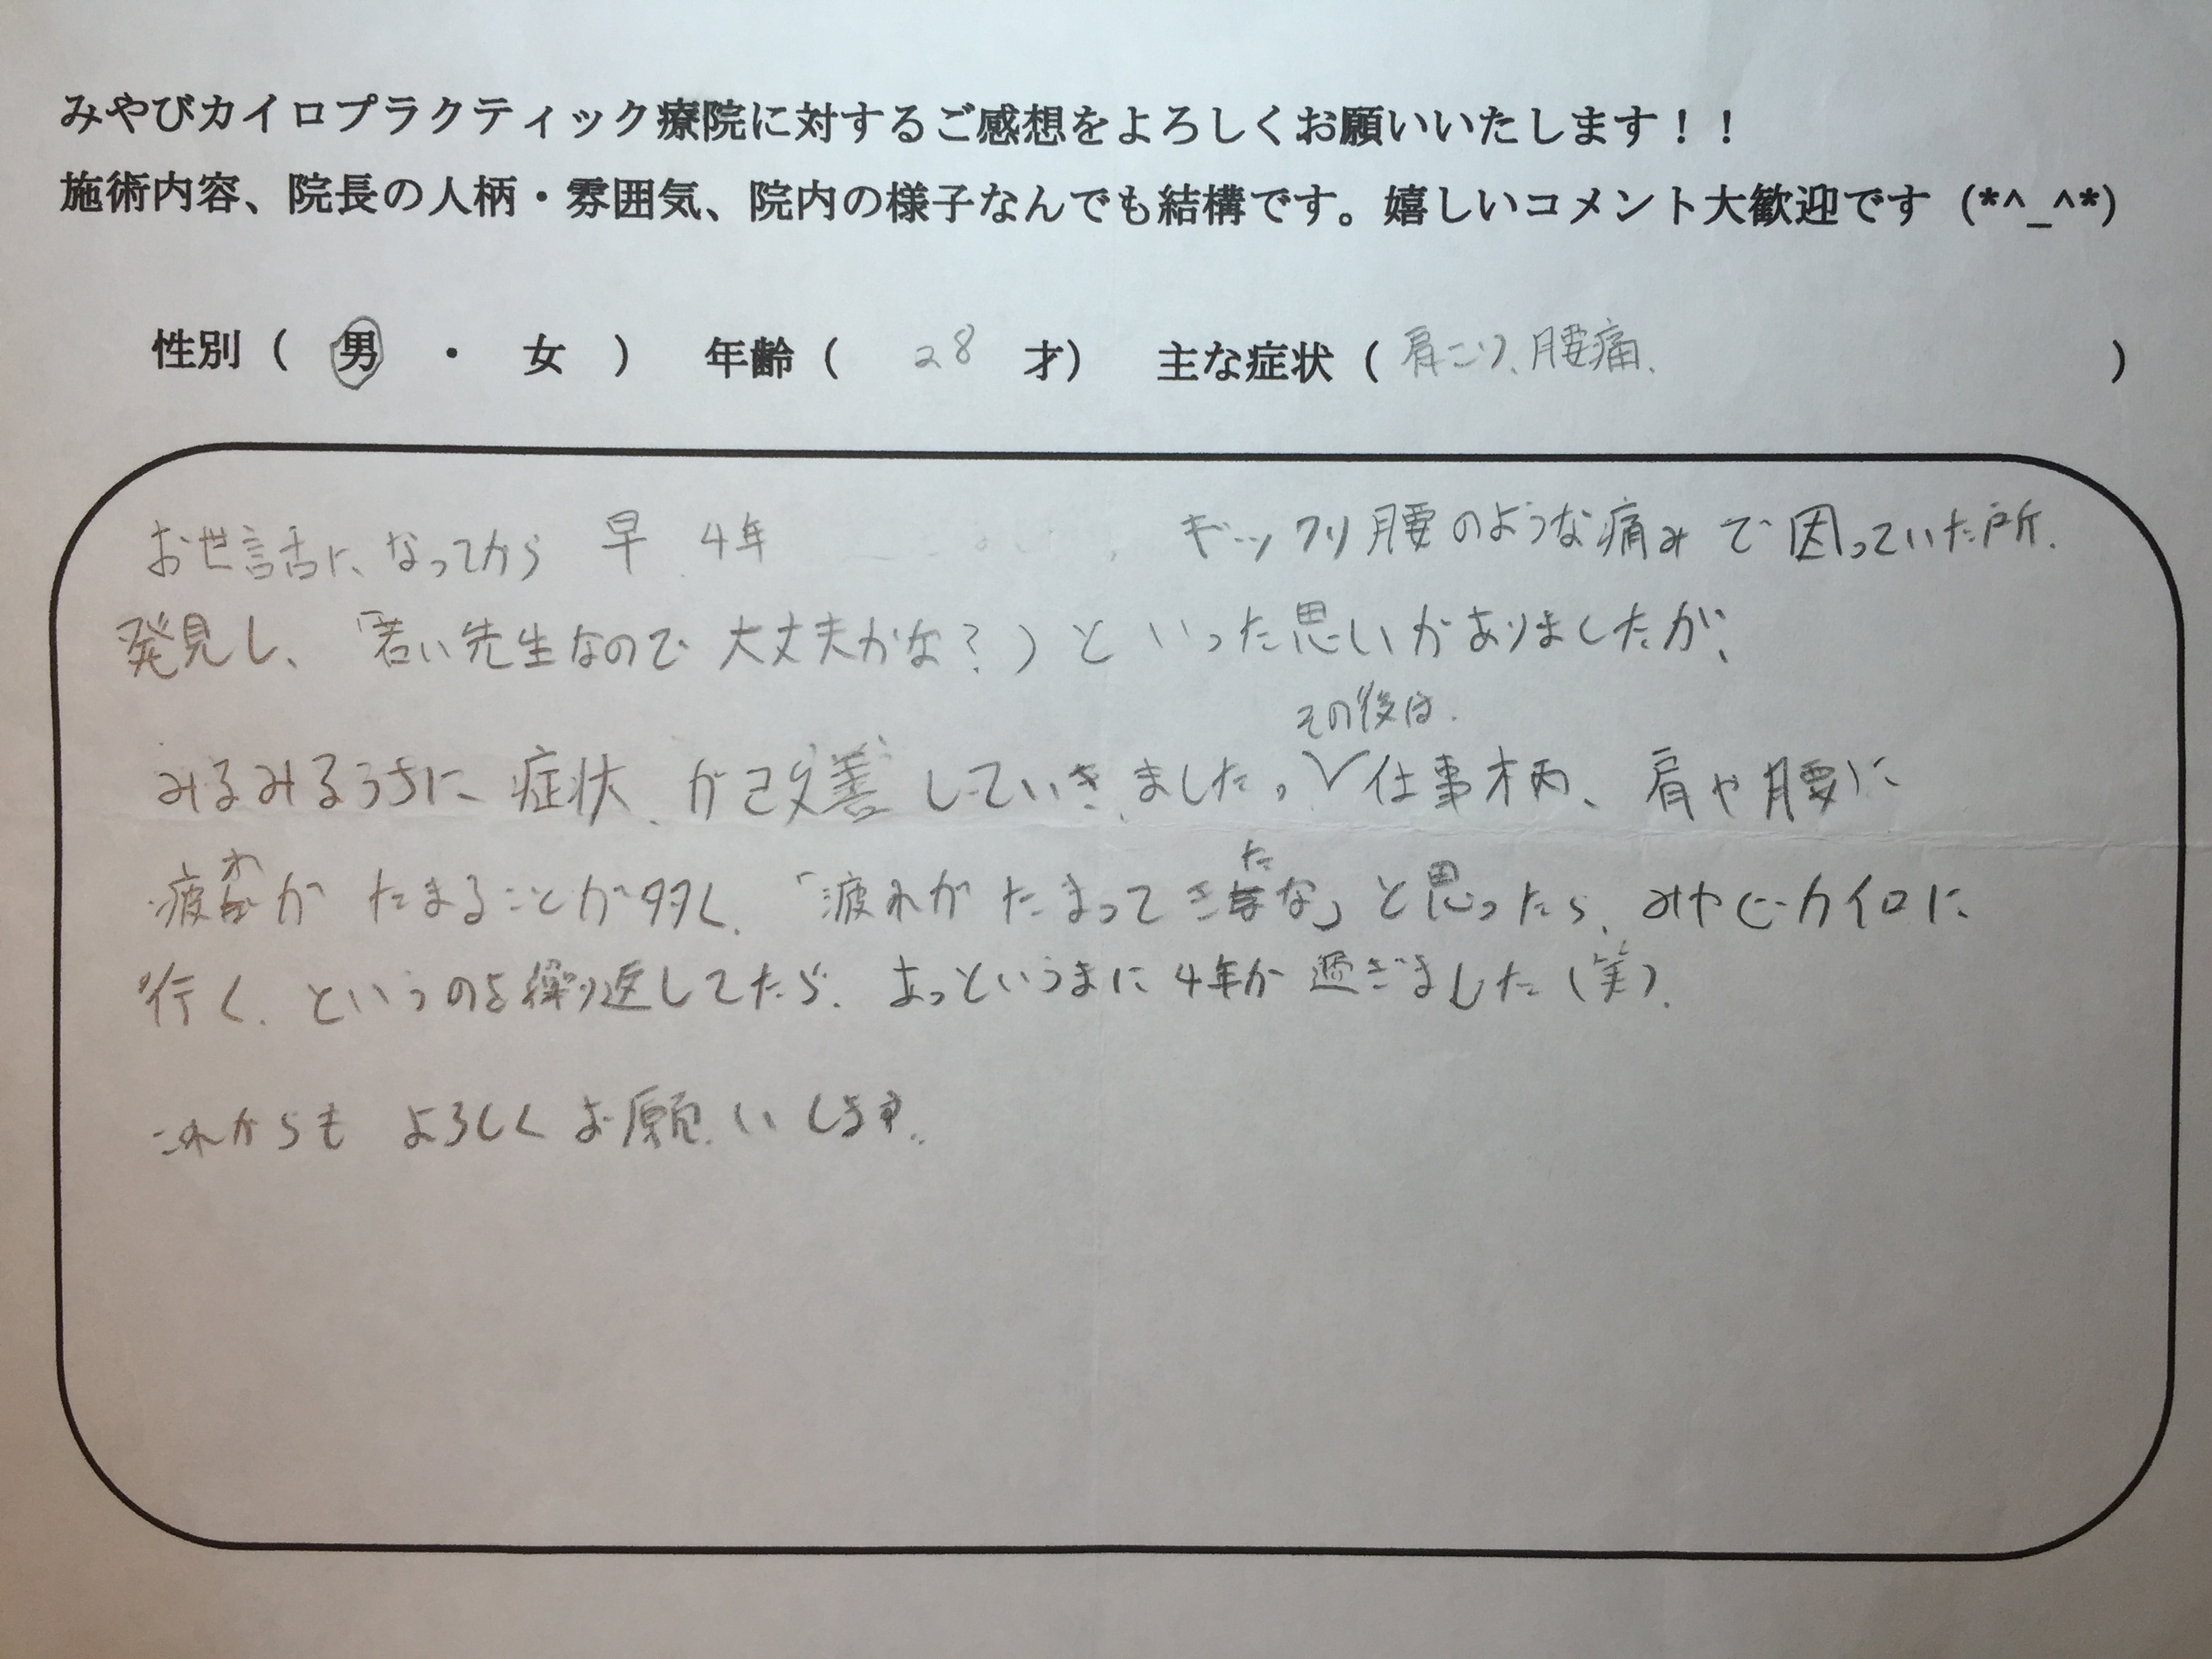 みやびカイロプラクティック療院に対するご感想をよろしくお願いいたします！！
施術内容、院長の人柄・雰囲気、院内の様子なんでも結構です。嬉しいコメント大歓迎です（*^_^*）
性別（　男　・　女　）　年齢（　28　才）　主な症状（ 肩こり、腰痛、　）
お世話になってから 早、4年　ギックリ腰のような痛みで困っていた所、
発見し、「若い先生なので大丈夫かな？）といった思いがありましたが、
その後は、
みるみるうちに症状が改善していきました。∨仕事柄、肩や腰に
疲れがたまることが多く、「疲れがたまってきたな」と思ったら、みやびカイロに
行く、というのを繰り返してたら、あっというまに4年が過ぎました（笑）。
これからもよろしくお願いします。